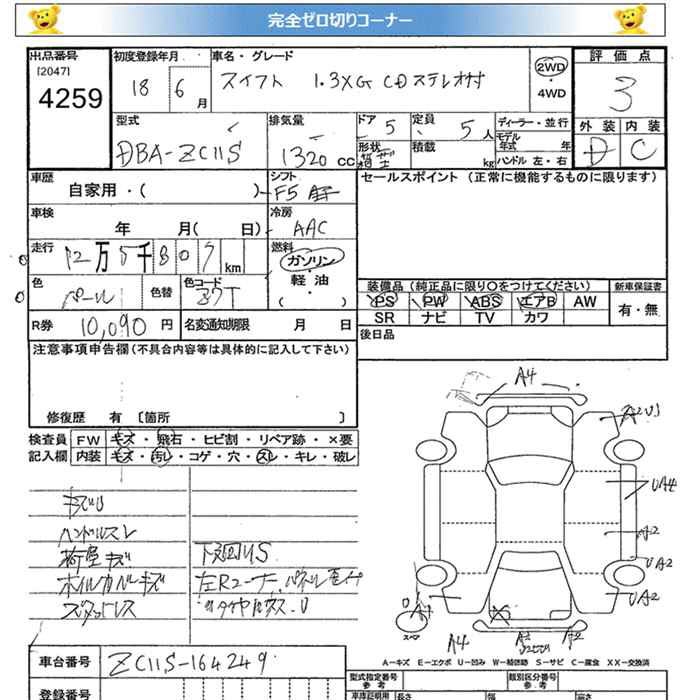 完全ゼロ切りコーナー
出品番号 初度登録年月 車名・グレード 評価点
[2047]
4259
18 6月 スイフト 1.3XG CDステレオ付 2WD 3
4WD
型式 排気量 ドア 5 定員 5人 ディーラー・並行 外装 内装
DBA-ZC11S 1320 cc 形状 積載 kg モデル年式 年 D C
ハンドル 左・右
車歴 シフト セールスポイント (正常に機能するものに限ります)
自家用・( ) F5
車検 冷房
年 月( 日) AAC
走行 燃料
12万5千807km ガソリン
軽・油
( )
色 色替 色コード 装備品 (純正品に限り○をつけてください) 新車保証書
パール Z7T PS PW ABS エアB AW 有・無
SR ナビ TV カワ
R券 10,090円 名変通知期限 月 日 後日品
注意事項申告欄(不具合内容等は具体的に記入して下さい)
修復歴 有 [箇所 ]
検査員 FW キズ・飛石・ヒビ割・リペア跡・×要
記入欄 内装 キズ・汚レ・コゲ・穴・スレ・キレ・破レ
ハンドルスレ
荷室キズ 下廻りS
ホイルカバーキズ 左Rコーナーパネル
A4
A2US
UA4
A2
UA2
UA2
スペア
A4 A2 A2
A=キズ E=エクボ U=凹み W=補修跡 S=サビ C=腐食 XX=交換済
車台番号 ZC11S-164249
登録番号
型式指定番号 参考 類別区分番号 参考
車庫証明用 長さ 幅 高さ